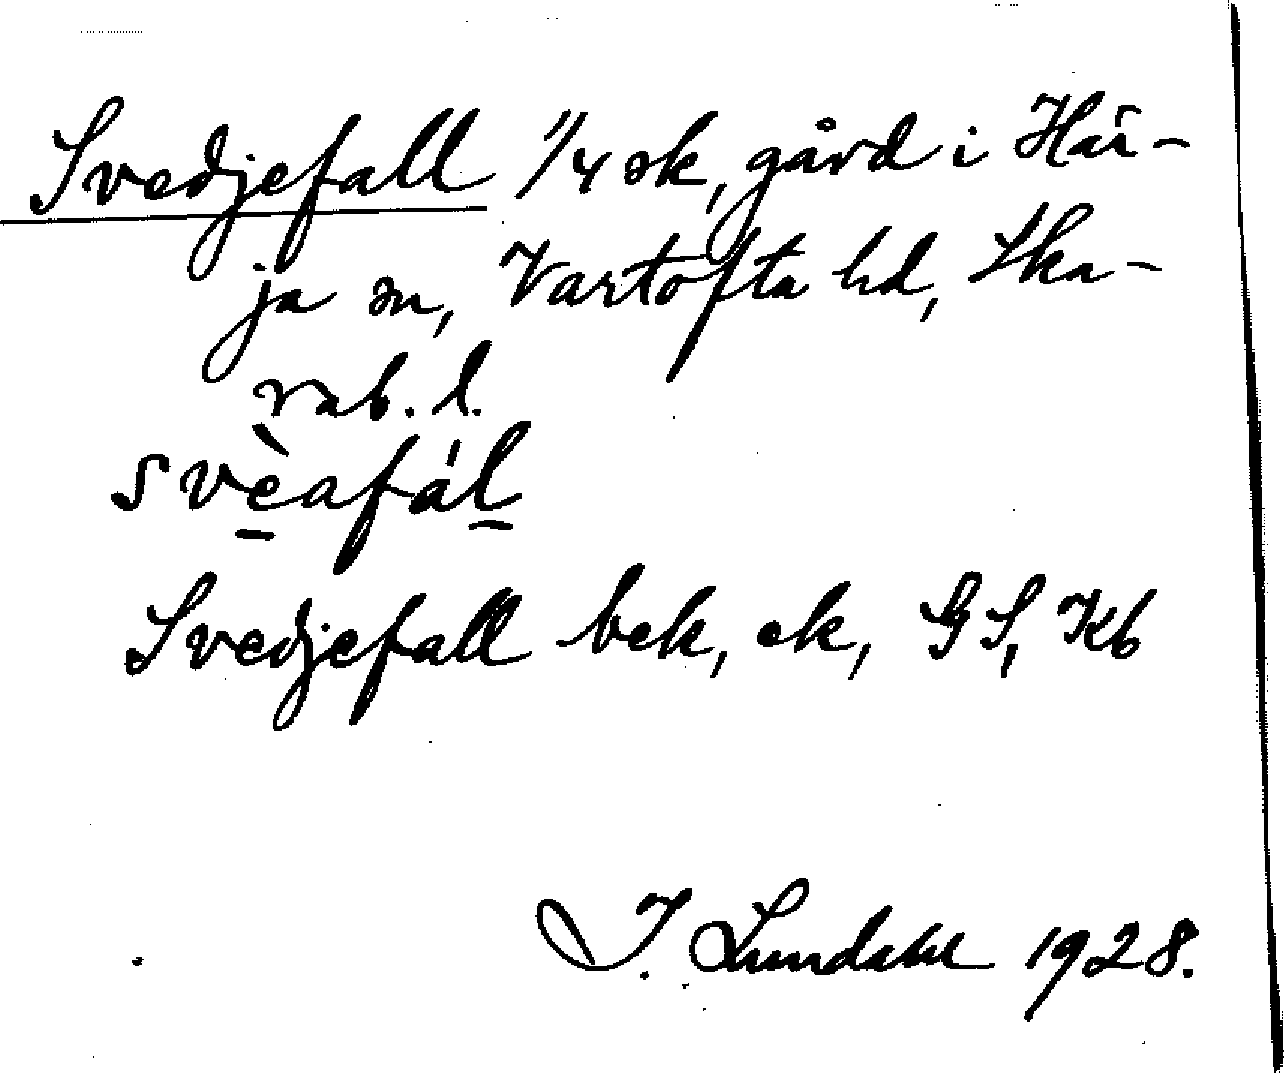 Svedjefall 1/4 sk, gård i Här-
ja sn, Vartofta hd, Ska-
rab. l.
svèafál
Svedjefall bek, ek, GS, Kb
I. Lundahl 1928.